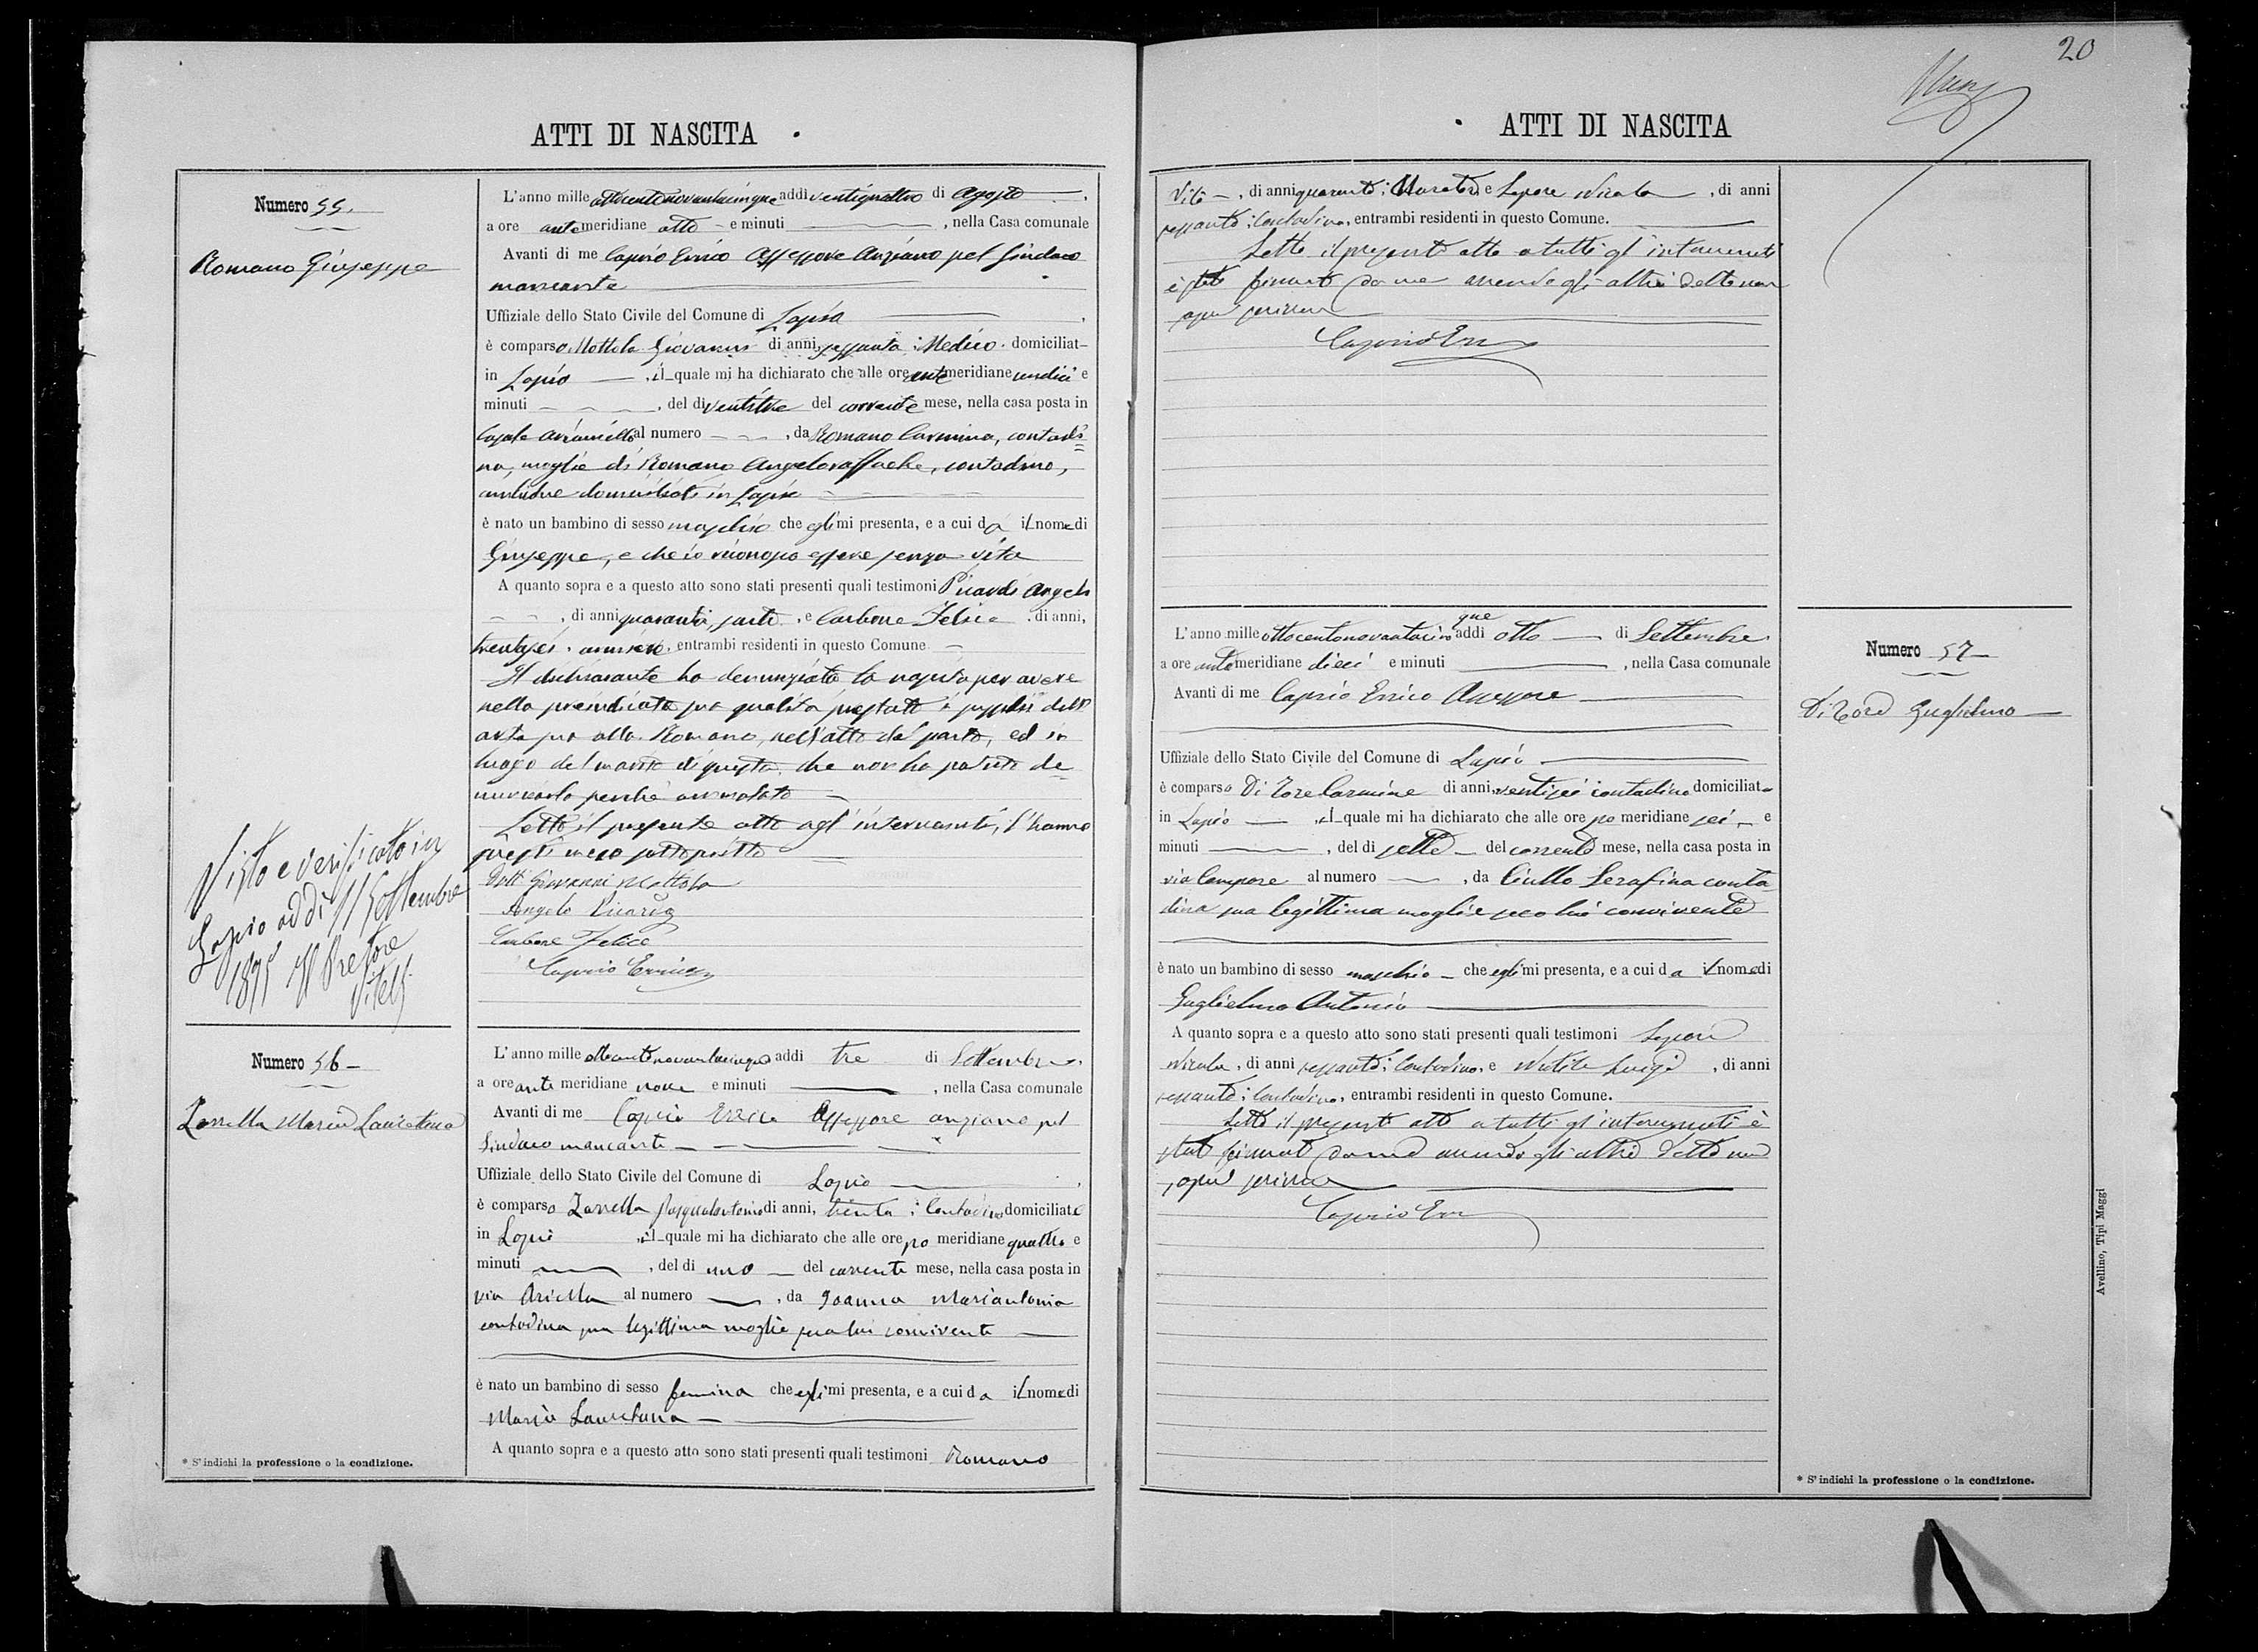 20
ATTI DI NASCITA
Numero 55.
Romano Giuseppe
L'anno mille ottocentonovantacinque addì ventiquattro di Agosto,
a ore antemeridiane otto e minuti , nella Casa comunale
Avanti di me Caprio Errico Assessore Anziano pel Sindaco
mancante
Uffiziale dello Stato Civile del Comune di Lapio
è comparso Mottola Giovanni di anni sessanta, Medico domiciliat-
in Lapio , il quale mi ha dichiarato che alle ore antemeridiane undici e
minuti , del dì ventitre del corrente mese, nella casa posta in
Casale Arianiello al numero , da Romano Carmina, contadi=
na, moglie di Romano Angeloraffaele, contadino,
ambidue domiciliati in Lapio
è nato un bambino di sesso maschio che egli mi presenta, e a cui dà il nome di
Giuseppe, e che io riconosco essere senza vita
A quanto sopra e a questo atto sono stati presenti quali testimoni Picardi Angelo
, di anni quaranta, sarto, e Carbone Felice, di anni,
trentasei, usciere, entrambi residenti in questo Comune
Il dichiarante ha denunziata la nascita per avere
nella predicata sua qualità prestati i sussidii dell'
arte sua alla Romano, nell'atto del parto, ed in
luogo del marito di questa, che non ha potuto de=
nunciarlo perchè ammalato
Letto il presente atto agl'intervenuti, l'hanno
questi meco sottoscritto
Dott Giovanni Mottola
Angelo Picardi
Carbone Felice
Caprio Errico
Visto e verificato in
Lapio addì 11 Settembre
1895 Il Pretore
Vitelli
Numero 56-
Zarrella Maria Lauretana
L'anno mille ottocentonovantacinque addì tre di Settembre,
a ore ante meridiane nove e minuti , nella Casa comunale
Avanti di me Caprio Errico Assessore anziano pel
Sindaco mancante
Uffiziale dello Stato Civile del Comune di Lapio
è comparso Zarrella Pasqualantonio di anni, trenta, contadino domiciliato
in Lapio , il quale mi ha dichiarato che alle ore po meridiane quattro e
minuti , del dì uno del corrente mese, nella casa posta in
via Ariella al numero , da Ioanna Mariantonia
contadina sua legittima moglie seco lui convivente
è nato un bambino di sesso femina che egli mi presenta, e a cui da il nome di
Maria Lauretana
A quanto sopra e a questo atto sono stati presenti quali testimoni Romano
* S'indichi la professione o la condizione.
ATTI DI NASCITA
Vito, di anni quaranta, Muratore e Lepore Nicola, di anni
sessanta, Contadino, entrambi residenti in questo Comune.
Letto il presente atto a tutti gl'intervenuti
è stato firmato da me avendo gli altri detto non
saper scrivere
Caprio Err
Numero 57
Di Tore Guglielmo
L'anno mille ottocentonovantacinque addì otto di Settembre
a ore antemeridiane dieci e minuti , nella Casa comunale
Avanti di me Caprio Errico Assessore
Uffiziale dello Stato Civile del Comune di Lapio
è comparso Di Tore Carmine di anni ventisei contadino domiciliato
in Lapio , il quale mi ha dichiarato che alle ore po meridiane sei e
minuti , del dì sette del corrente mese, nella casa posta in
via Campore al numero , da Ciullo Serafina conta
dina sua legittima moglie seco lui convivente
è nato un bambino di sesso maschio che egli mi presenta, e a cui da il nome di
Guglielmo Antonio
A quanto sopra e a questo atto sono stati presenti quali testimoni Lepore
Nicola, di anni sessanta, Contadino, e Luigi, di anni
sessanta, Contadino, entrambi residenti in questo Comune.
Letto il presente atto a tutti gl'intervenuti è
stato firmato da me avendo gli altri detto non
saper scrivere
Caprio Err
* S'indichi la professione o la condizione.
Avellino, Tipi Maggi